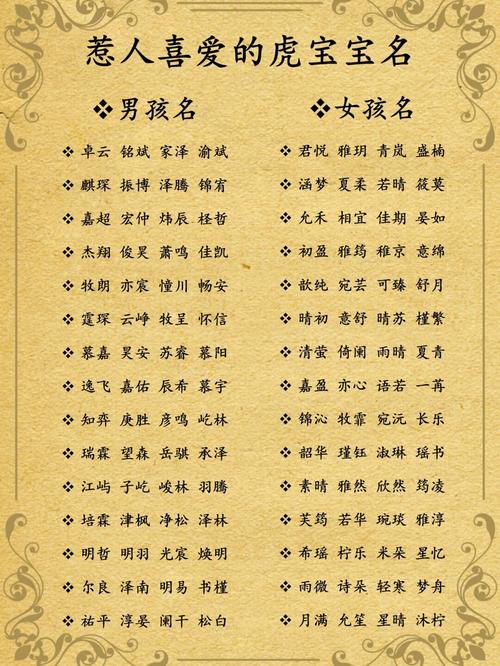 惹人喜爱的虎宝宝名
男孩名
卓云 铭斌 家泽 渝斌
麒琛 振博 泽腾 锦宥
嘉超 宏仲 炜辰 柽哲
杰翔 俊昊 萧鸣 佳凯
牧朗 亦宸 憧川 畅安
霆琛 云峥 牧呈 怀信
慕嘉 昊安 苏睿 慕阳
逸飞 嘉佑 辰希 慕宇
知弈 庚胜 彦鸣 屹林
瑞霖 望森 岳骐 承泽
江屿 子屹 峻林 羽腾
培霖 津枫 净松 泽林
明哲 明羽 光宸 焕明
尔良 泽南 明易 书槿
祐平 淳晏 阑干 松白
女孩名
君悦 雅玥 青岚 盛楠
涵梦 夏柔 若晴 筱莫
允禾 相宜 佳期 晏如
初盈 雅筠 稚京 意绵
歆纯 宛芸 可臻 舒月
晴初 意舒 晴苏 槿繁
清萤 倚阑 雨晴 夏青
嘉盈 亦心 语若 一苒
锦沁 牧霏 宛沅 长乐
韶华 瑾钰 淑琳 瑶书
素晴 雅然 欣然 筠凌
芙筠 若华 琬琰 雅淳
希瑶 柠乐 米朵 星忆
雨微 诗朵 轻寒 梦舟
月满 允笙 星晴 沐柠